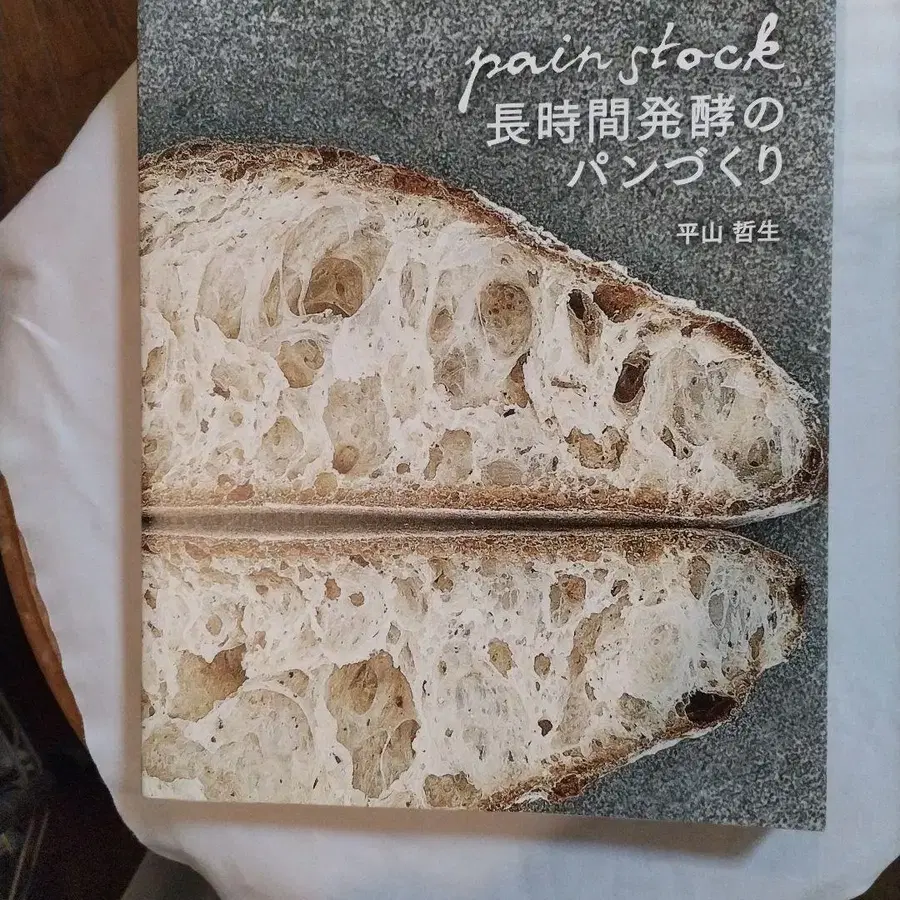 pain stock
長時間発酵の
パンづくり
平山 哲生